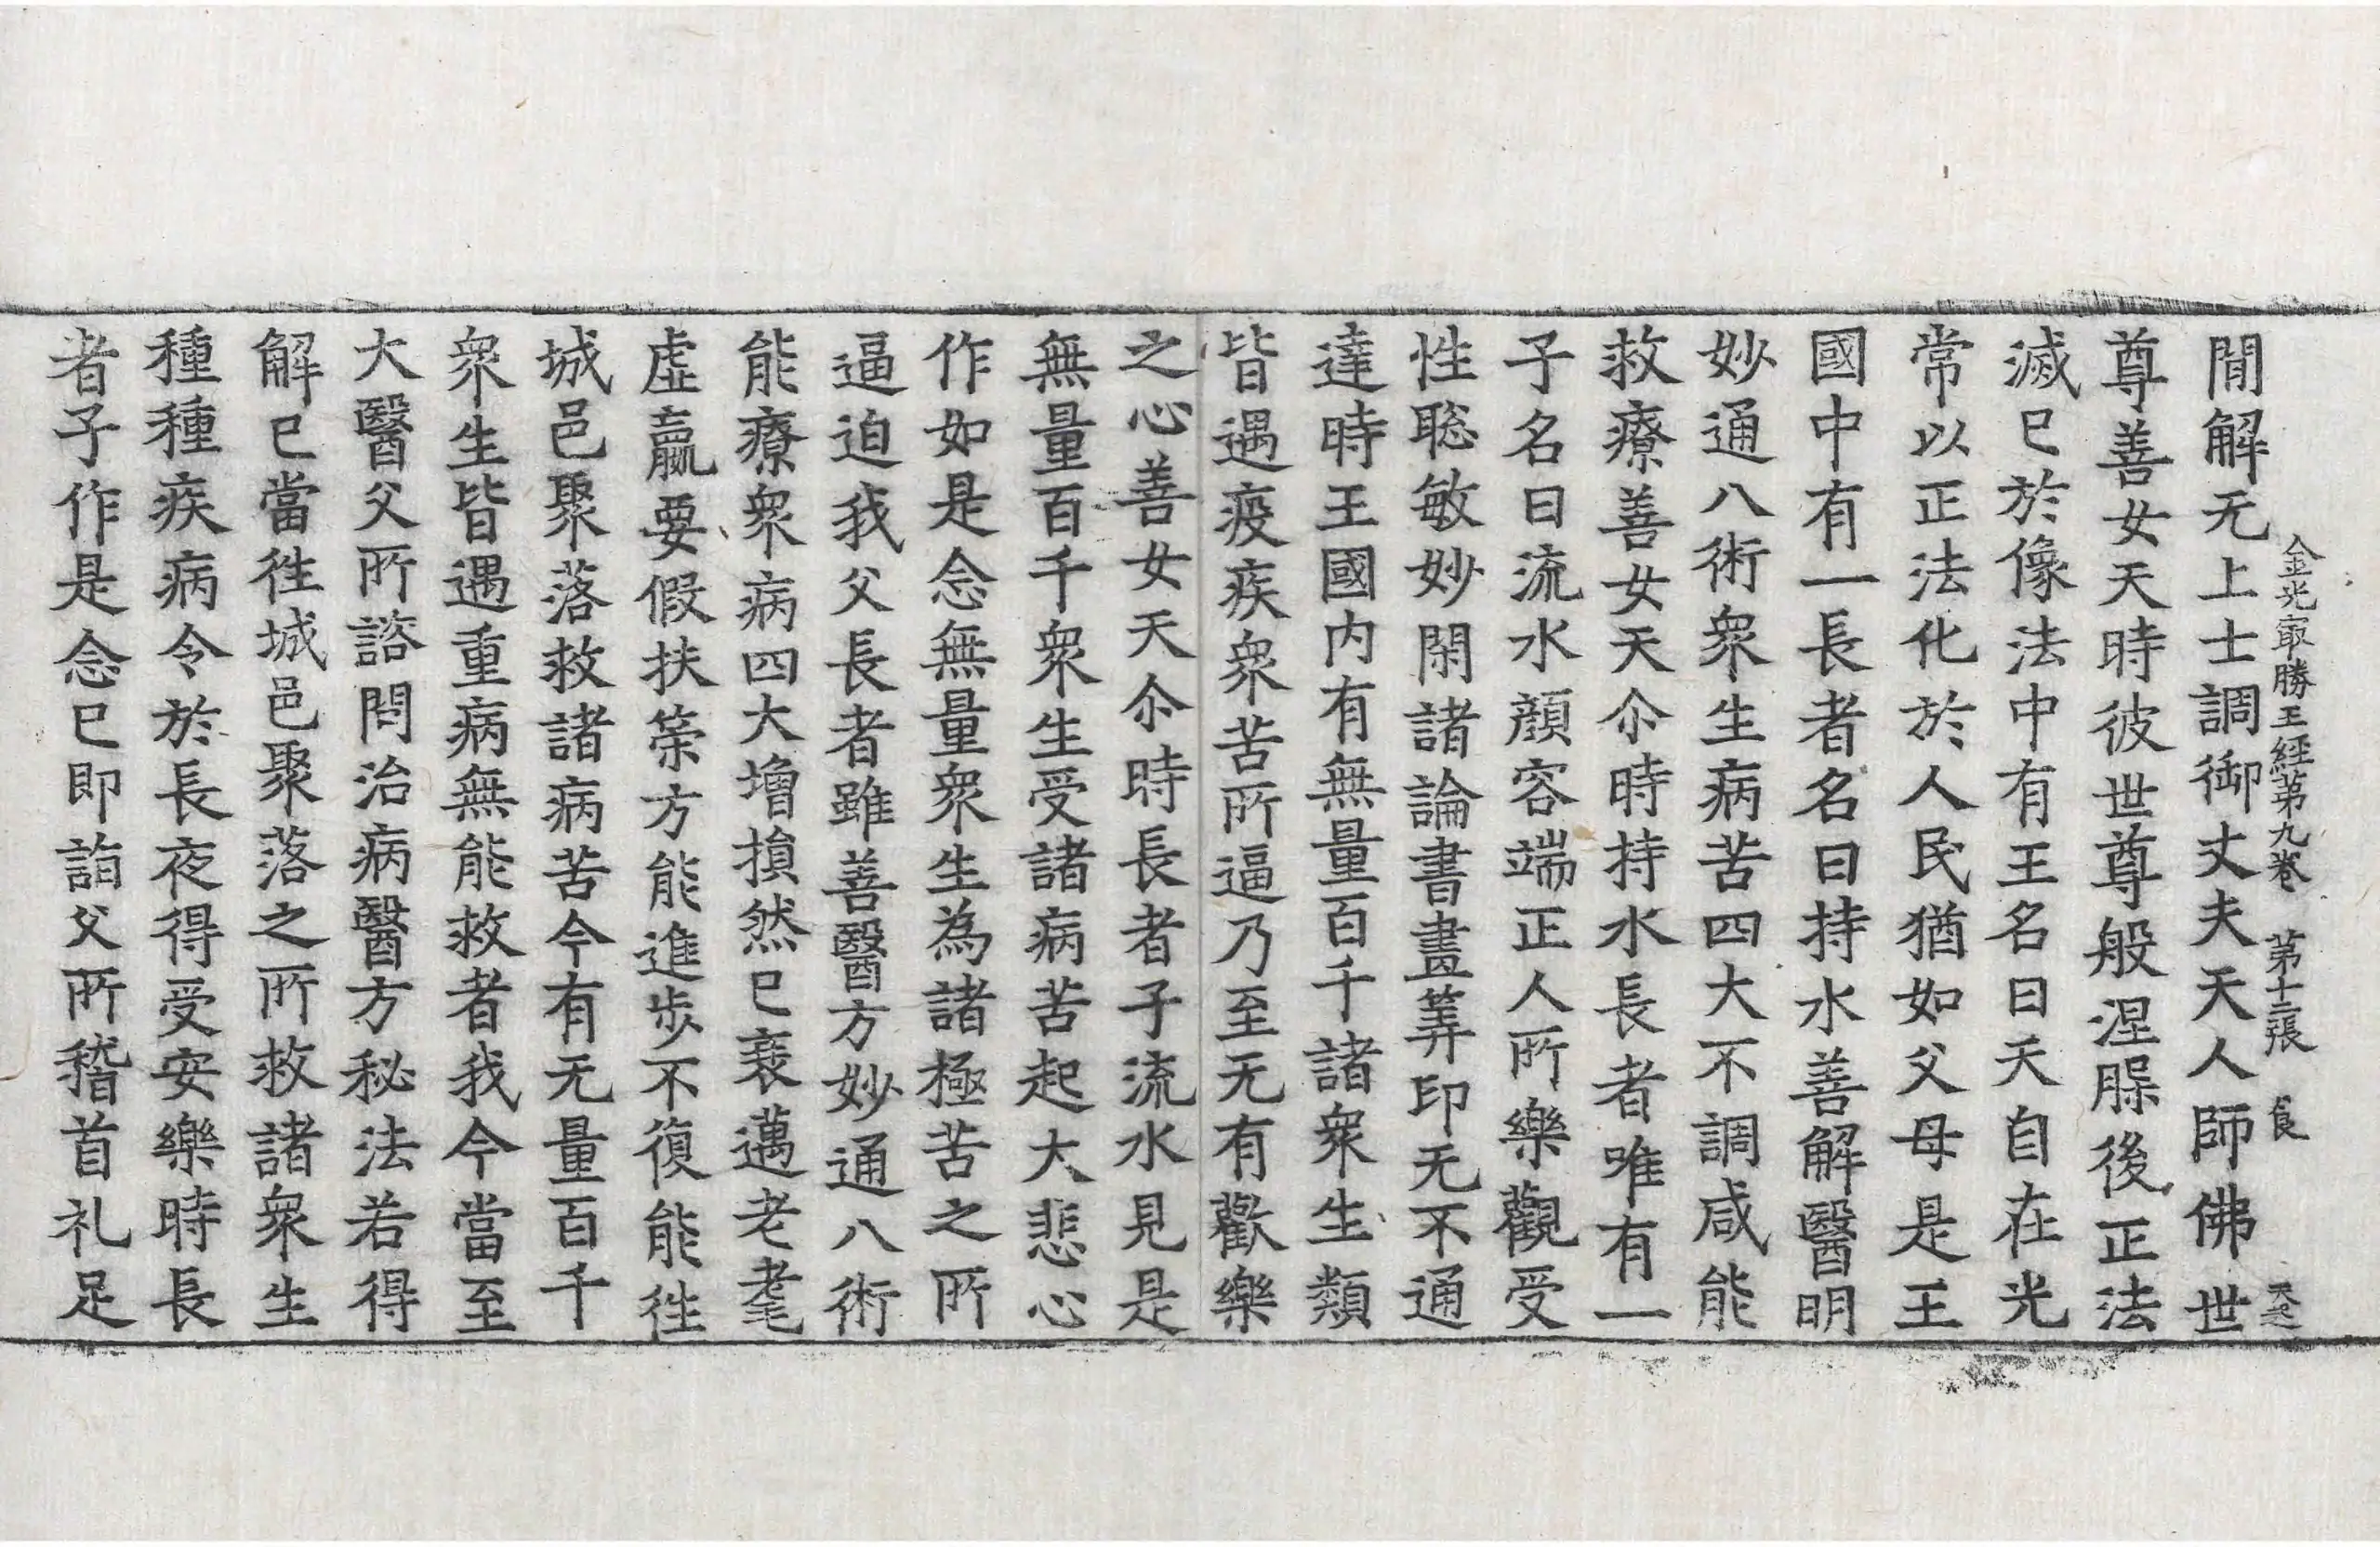 金光㝡勝王經第九卷 第十二張 食
間解无上士調御丈夫天人師佛世
尊善女天時彼世尊般涅脲後正法
滅已於像法中有王名曰天自在光
常以正法化於人民猶如父母是王
國中有一長者名曰持水善解醫明
妙通八術衆生病苦四大不調咸能
救療善女天尒時持水長者唯有一
子名曰流水顔容端正人所樂觀受
性聡敏妙閑諸論書畫筭印无不通
達時王國内有無量百千諸衆生類
皆遇疫疾衆苦所逼乃至无有歡樂
之心善女天尒時長者子流水見是
無量百千衆生受諸病苦起大悲心
作如是念無量衆生為諸極苦之所
逼迫我父長者雖善醫方妙通八術
能療衆病四大增損然已衰邁老耄
虛羸要假扶策方能進步不復能往
城邑聚落救諸病苦今有无量百千
衆生皆遇重病無能救者我今當至
大醫父所諮問治病醫方秘法若得
解已當往城邑聚落之所救諸衆生
種種疾病令於長夜得受安樂時長
者子作是念已即詣父所稽首礼足